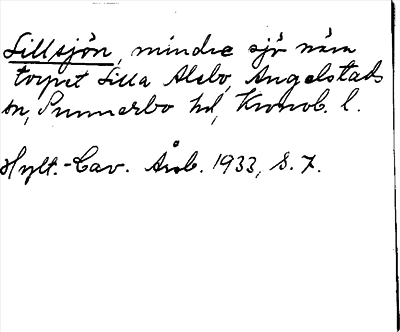 Lillsjön, mindre sjö nära
torpet Lilla Alebo, Angelstads
sn, Sunnerbo hd, Kronob. l.
Hylt.-Cav. Årsb. 1933, s. 7.